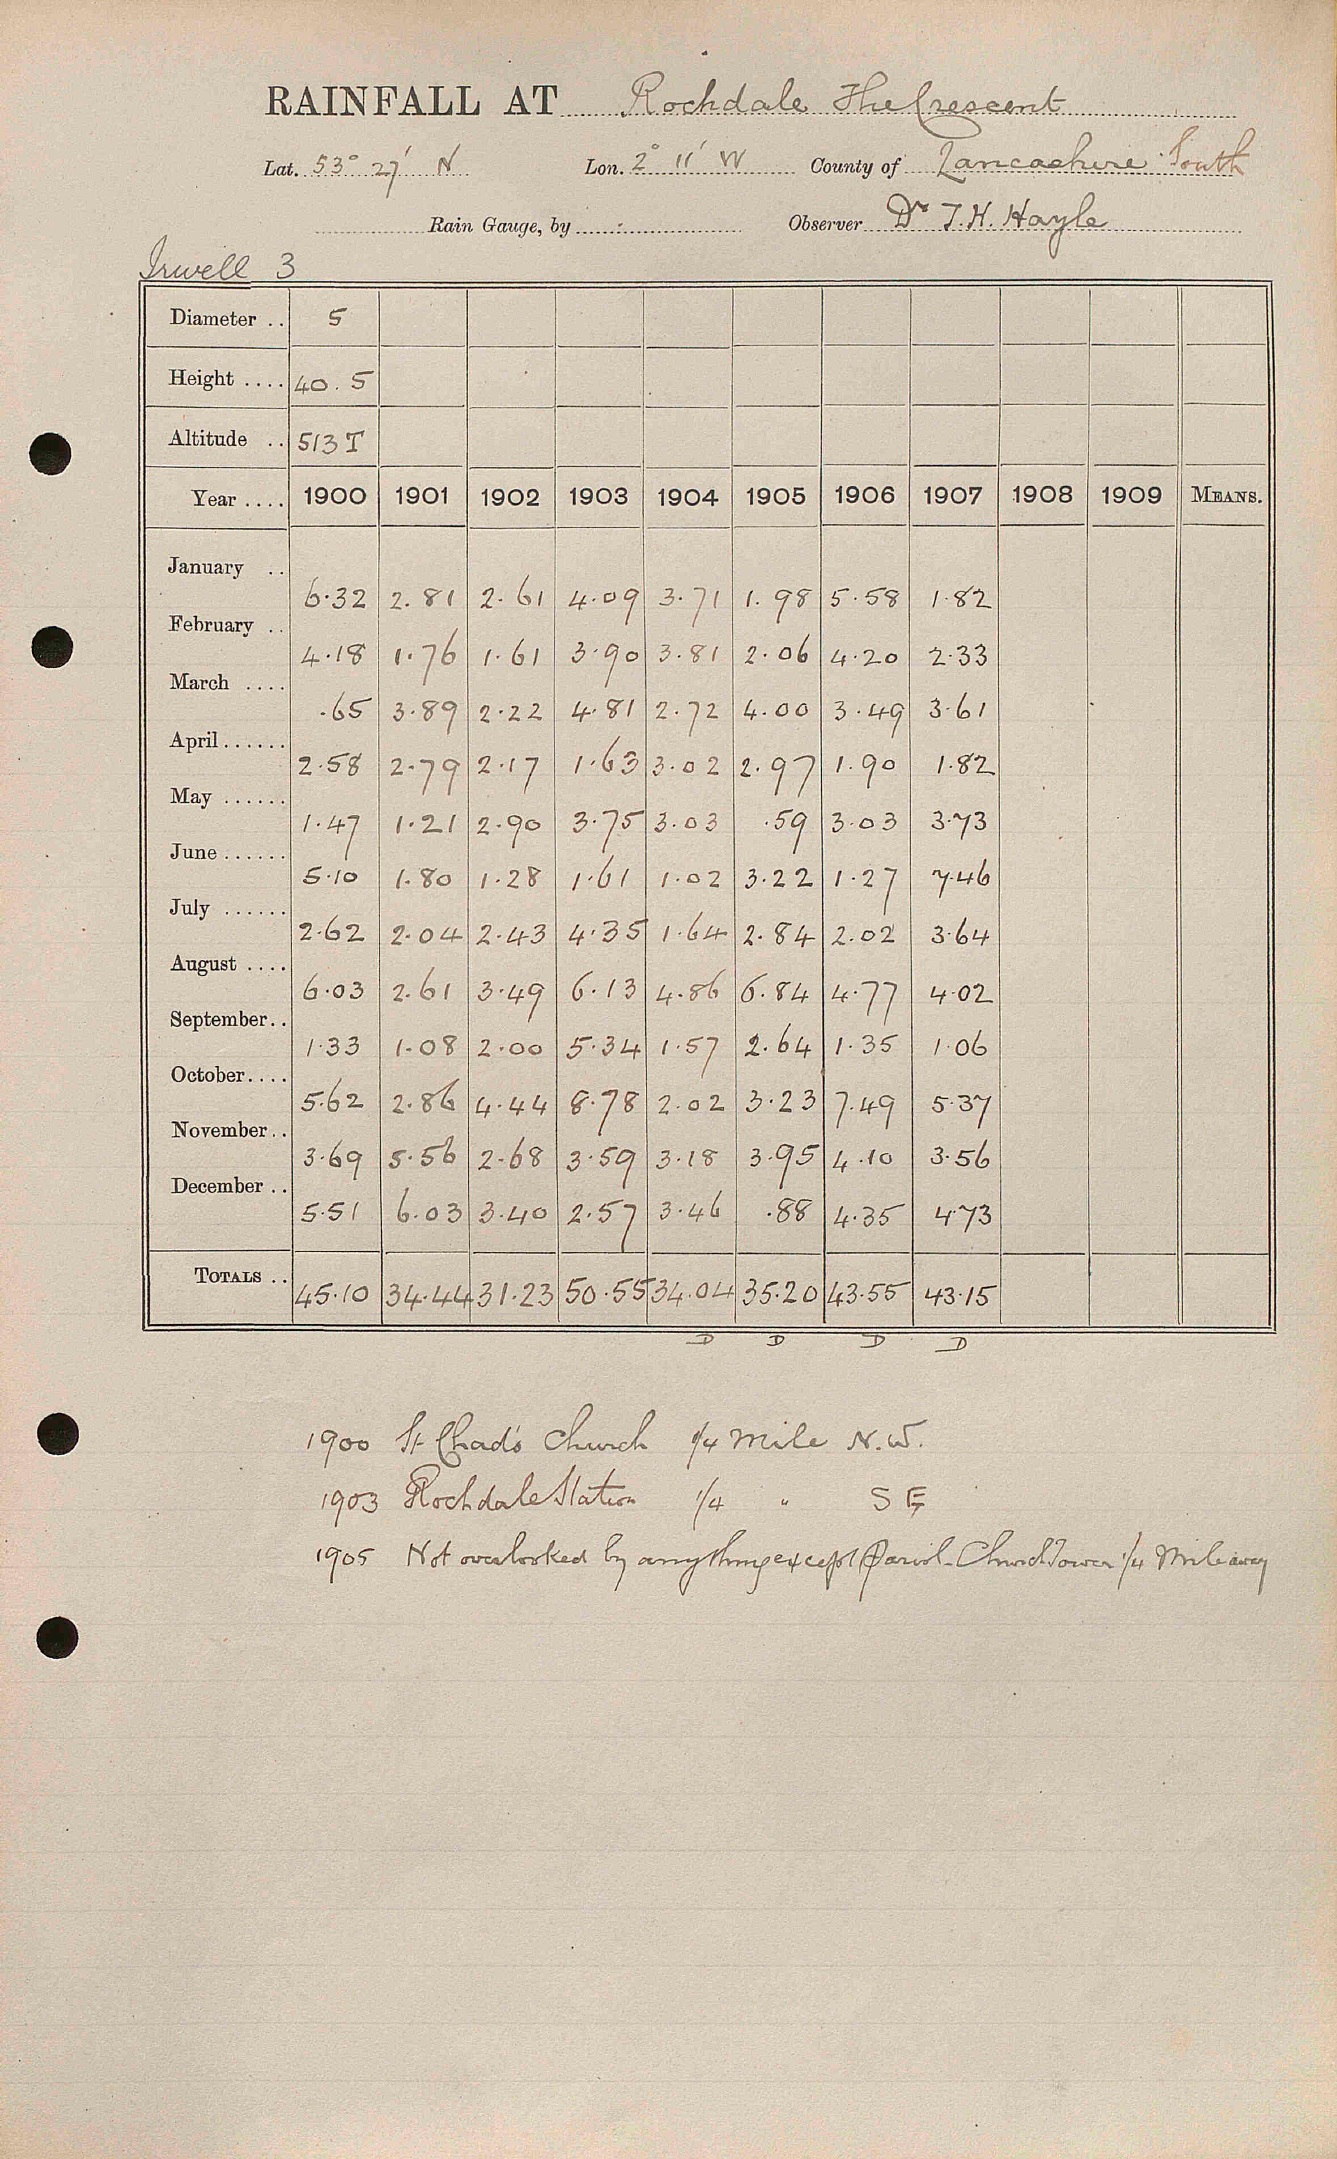 RAINFALL AT Rochdale The Crescent
Lat. 53° 27' N Lon. 2° 11' W County of Lancashire South
Rain Gauge, by - Observer Dr T. H. Hayle
Irwell 3
Diameter .. 5
Height .... 40.5
Altitude .. 513 T
Year .... 1900 1901 1902 1903 1904 1905 1906 1907 1908 1909 MEANS.
January .. 6.32 2.81 2.61 4.09 3.71 1.98 5.58 1.82
February .. 4.18 1.76 1.61 3.90 3.81 2.06 4.20 2.33
March .... .65 3.89 2.22 4.81 2.72 4.00 3.49 3.61
April ...... 2.58 2.79 2.17 1.63 3.02 2.97 1.90 1.82
May ...... 1.47 1.21 2.90 3.75 3.03 .59 3.03 3.73
June ...... 5.10 1.80 1.28 1.61 1.02 3.22 1.27 7.46
July ...... 2.62 2.04 2.43 4.35 1.64 2.84 2.02 3.64
August .... 6.03 2.61 3.49 6.13 4.86 6.84 4.77 4.02
September .. 1.33 1.08 2.00 5.34 1.57 2.64 1.35 1.06
October .... 5.62 2.86 4.44 8.78 2.02 3.23 7.49 5.37
November .. 3.69 5.56 2.68 3.59 3.18 3.95 4.10 3.56
December .. 5.51 6.03 3.40 2.57 3.46 .88 4.35 4.73
TOTALS .. 45.10 34.44 31.23 50.55 34.04 35.20 43.55 43.15
D D D D
1900 St Chad's Church 1/4 Mile N.W.
1903 Rochdale Station 1/4 " S E
1905 Not overlooked by anything except Parish Church Tower 1/4 Mile away